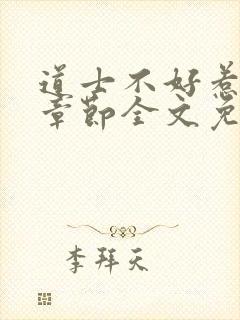 道士不好惹
章节全文免
李拜天